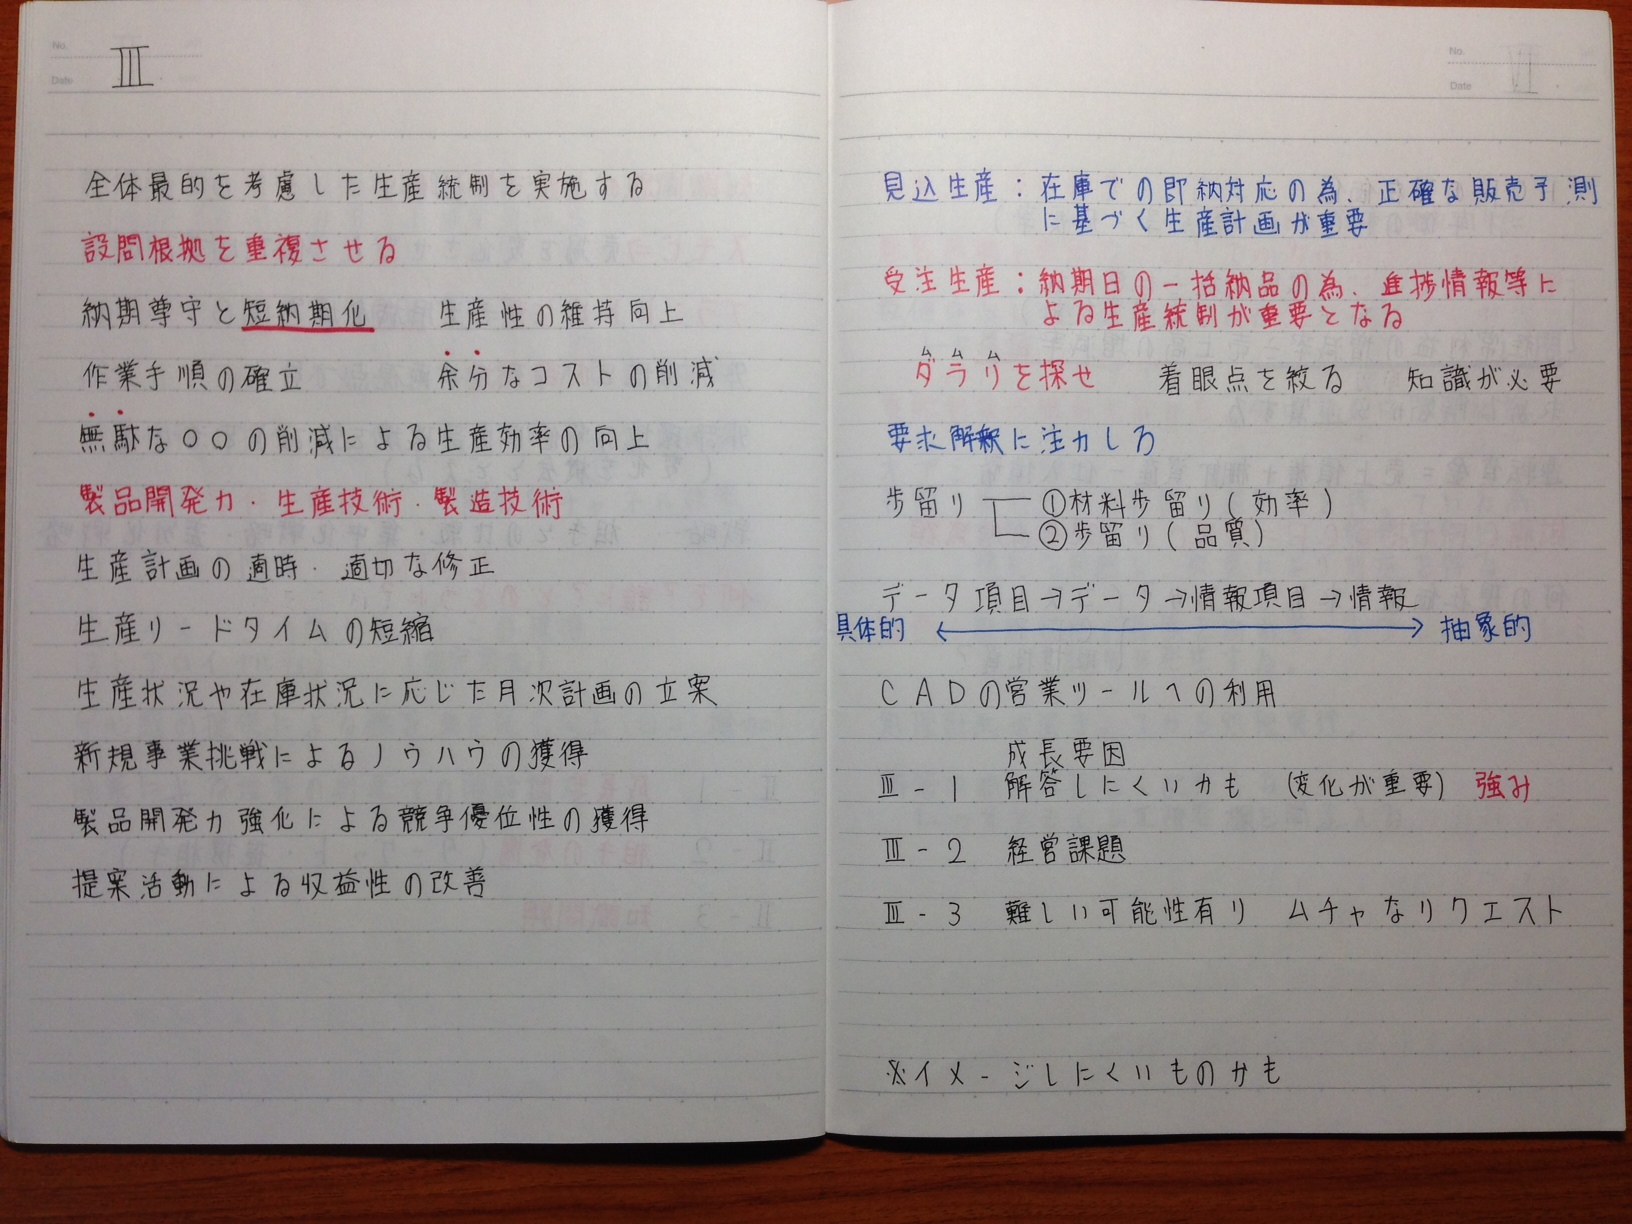 No.
Date
Ⅲ
全体最的を考慮した生産統制を実施する
設問根拠を重複させる
納期尊守と短納期化　生産性の維持向上
作業手順の確立　余分なコストの削減
無駄な〇〇の削減による生産効率の向上
製品開発力・生産技術・製造技術
生産計画の適時・適切な修正
生産リードタイムの短縮
生産状況や在庫状況に応じた月次計画の立案
新規事業挑戦によるノウハウの獲得
製品開発力強化による競争優位性の獲得
提案活動による収益性の改善
No.
Date
見込生産：在庫での即納対応の為、正確な販売予測
に基づく生産計画が重要
受注生産：納期日の一括納品の為、進捗情報等に
よる生産統制が重要となる
ムムム
ダラリを探せ　着眼点を絞る　知識が必要
要求解釈に注力しろ
歩留り　①材料歩留り(効率)
②歩留り(品質)
データ項目→データ→情報項目→情報
具体的　抽象的
CADの営業ツールへの利用
成長要因
Ⅲ-1　解答しにくいかも　(変化が重要)　強み
Ⅲ-2　経営課題
Ⅲ-3　難しい可能性有り　ムチャなリクエスト
※イメージしにくいものかも